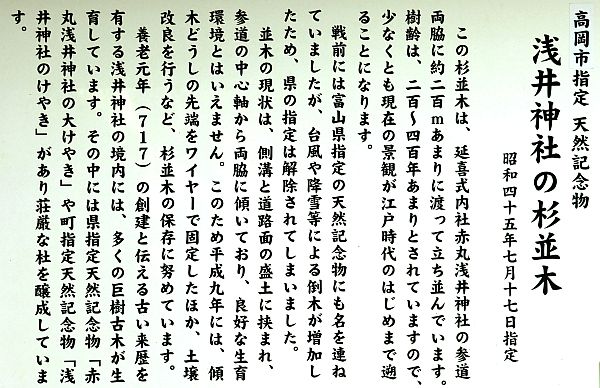 高岡市指定 天然記念物
浅井神社の杉並木
昭和四十五年七月十七日指定
この杉並木は、延喜式内社赤丸浅井神社の参道
両脇に約二百mあまりに渡って立ち並んでいます。
樹齢は、二百〜四百年あまりとされていますので、
少なくとも現在の景観が江戸時代のはじめまで遡
ることになります。
戦前には富山県指定の天然記念物にも名を連ね
ていましたが、台風や降雪等による倒木が増加し
たため、県の指定は解除されてしまいました。
並木の現状は、側溝と道路面の盛土に挟まれ、
参道の中心軸から両脇に傾いており、良好な生育
環境とはいえません。このため平成九年には、傾
木どうしの先端をワイヤーで固定したほか、土壌
改良を行うなど、杉並木の保存に努めています。
養老元年（717）の創建と伝える古い来歴を
有する浅井神社の境内には、多くの巨樹古木が生
育しています。その中には県指定天然記念物「赤
丸浅井神社の大けやき」や町指定天然記念物「浅
井神社のけやき」があり荘厳な社を醸成していま
す。